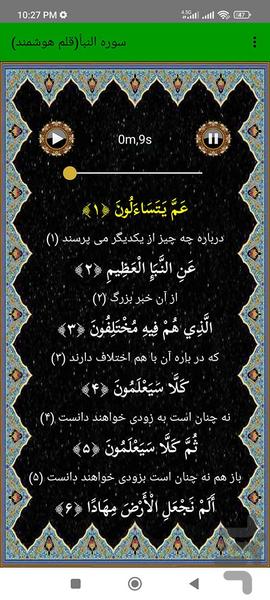 10:27 PM
سوره النبأ(قلم هوشمند)
0m,9s
عَمَّ يَتَسَاءَلُونَ ﴿۱﴾
درباره چه چیز از یکدیگر می پرسند (۱)
عَنِ النَّبَإِ الْعَظِيمِ ﴿۲﴾
از آن خبر بزرگ (۲)
الَّذِي هُمْ فِيهِ مُخْتَلِفُونَ ﴿۳﴾
که در باره آن با هم اختلاف دارند (۳)
كَلَّا سَيَعْلَمُونَ ﴿۴﴾
نه چنان است به زودی خواهند دانست (۴)
ثُمَّ كَلَّا سَيَعْلَمُونَ ﴿۵﴾
باز هم نه چنان است بزودی خواهند دانست (۵)
أَلَمْ نَجْعَلِ الْأَرْضَ مِهَادًا ﴿۶﴾